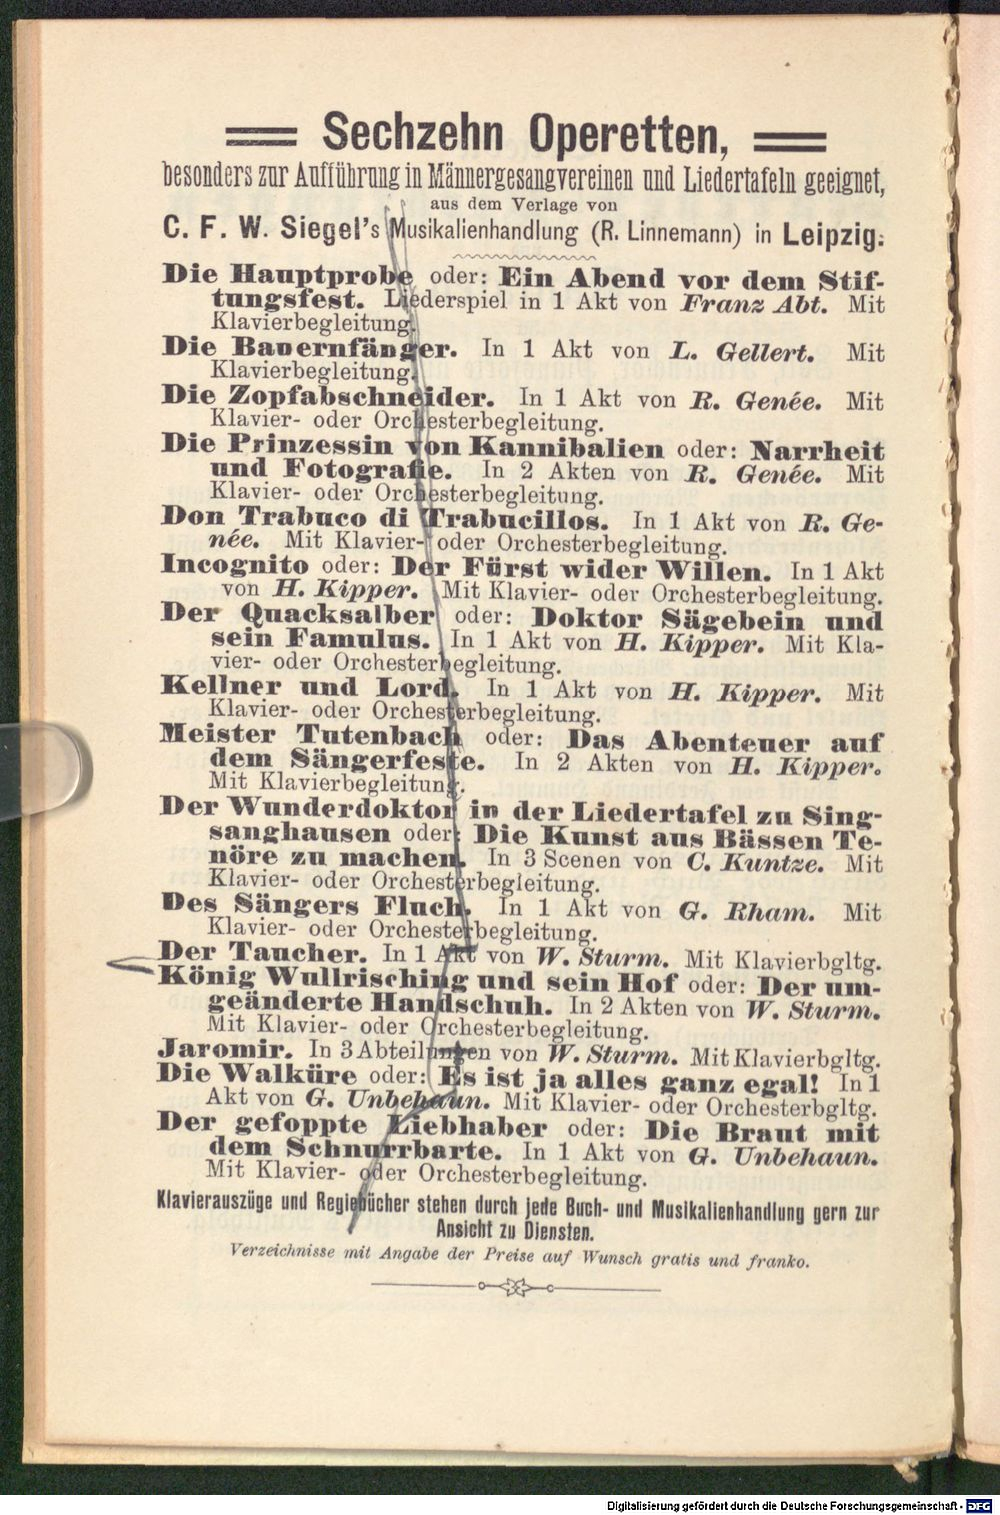 Sechzehn Operetten,
besonders zur Aufführung in Männergesangvereinen und Liedertafeln geeignet,
aus dem Verlage von
C. F. W. Siegel's Musikalienhandlung (R. Linnemann) in Leipzig.
Die Hauptprobe oder: Ein Abend vor dem Stif-
tungsfest. Liederspiel in 1 Akt von Franz Abt. Mit
Klavierbegleitung.
Die Bauernfänger. In 1 Akt von L. Gellert. Mit
Klavierbegleitung.
Die Zopfabschneider. In 1 Akt von R. Genée. Mit
Klavier- oder Orchesterbegleitung.
Die Prinzessin von Kannibalien oder: Narrheit
und Fotografie. In 2 Akten von R. Genée. Mit
Klavier- oder Orchesterbegleitung.
Don Trabuco di Trabucillos. In 1 Akt von R. Ge-
née. Mit Klavier- oder Orchesterbegleitung.
Incognito oder: Der Fürst wider Willen. In 1 Akt
von H. Kipper. Mit Klavier- oder Orchesterbegleitung.
Der Quacksalber oder: Doktor Sägebein und
sein Famulus. In 1 Akt von H. Kipper. Mit Kla-
vier- oder Orchesterbegleitung.
Kellner und Lord. In 1 Akt von H. Kipper. Mit
Klavier- oder Orchesterbegleitung.
Meister Tutenbach oder: Das Abenteuer auf
dem Sängerfeste. In 2 Akten von H. Kipper.
Mit Klavierbegleitung.
Der Wunderdoktor in der Liedertafel zu Sing-
sanghausen oder: Die Kunst aus Bässen Te-
nöre zu machen. In 3 Scenen von C. Kuntze. Mit
Klavier- oder Orchesterbegleitung.
Des Sängers Fluch. In 1 Akt von G. Rham. Mit
Klavier- oder Orchesterbegleitung.
Der Taucher. In 1 Akt von W. Sturm. Mit Klavierbgltg.
König Wullrisching und sein Hof oder: Der um-
geänderte Handschuh. In 2 Akten von W. Sturm.
Mit Klavier- oder Orchesterbegleitung.
Jaromir. In 3 Abteilungen von W. Sturm. Mit Klavierbgltg.
Die Walküre oder: Es ist ja alles ganz egal! In 1
Akt von G. Unbehaun. Mit Klavier- oder Orchesterbgltg.
Der gefoppte Liebhaber oder: Die Braut mit
dem Schnurrbarte. In 1 Akt von G. Unbehaun.
Mit Klavier- oder Orchesterbegleitung.
Klavierauszüge und Regiebücher stehen durch jede Buch- und Musikalienhandlung gern zur
Ansicht zu Diensten.
Verzeichnisse mit Angabe der Preise auf Wunsch gratis und franko.
Digitalisierung gefördert durch die Deutsche Forschungsgemeinschaft - DFG